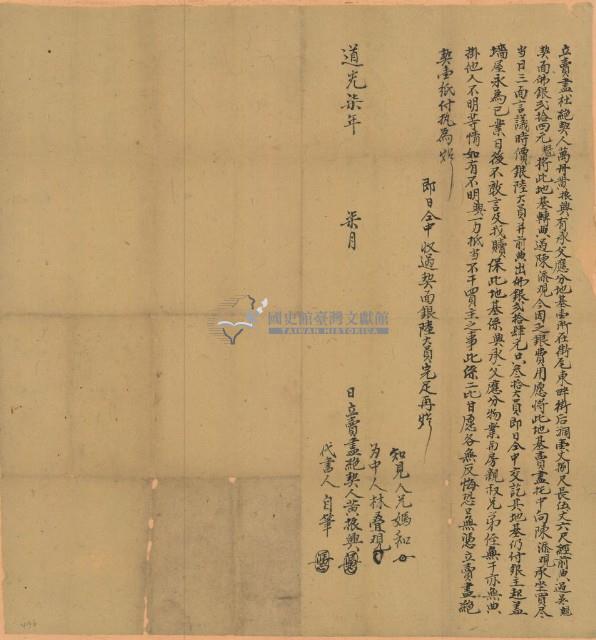 立賣盡杜絕契人萬丹黃振興有承父應分地基壹所在街尾東畔街后濶壹丈捌尺長伍丈六尺經前典過吳魁
契面佛銀弍拾四元魁將此地基轉典過陳添观今因乏銀費用愿將此地基賣盡托中向陳添观承坐買尽
当日三面言議時價銀陸大員并前典出佛銀弍拾肆元共叁拾大員即日仝中交訖其地基仍付銀主起盖
墻屋永為己業日後不敢言及找贖保此地基係興承父應分物業与房親叔兄弟侄無干亦無典
掛他人不明等情如有不明興一力抵当不干買主之事此係二比甘愿各無反悔恐口無憑立賣盡絕
契壹紙付执為炤
即日仝中收过契面銀陸大員完足再炤
知見人兄媽知
為中人林叠观
道光柒年 柒月 日立賣盡絕契人黃振興
代書人自筆
國史館臺灣文獻館
TAIWAN HISTORICA